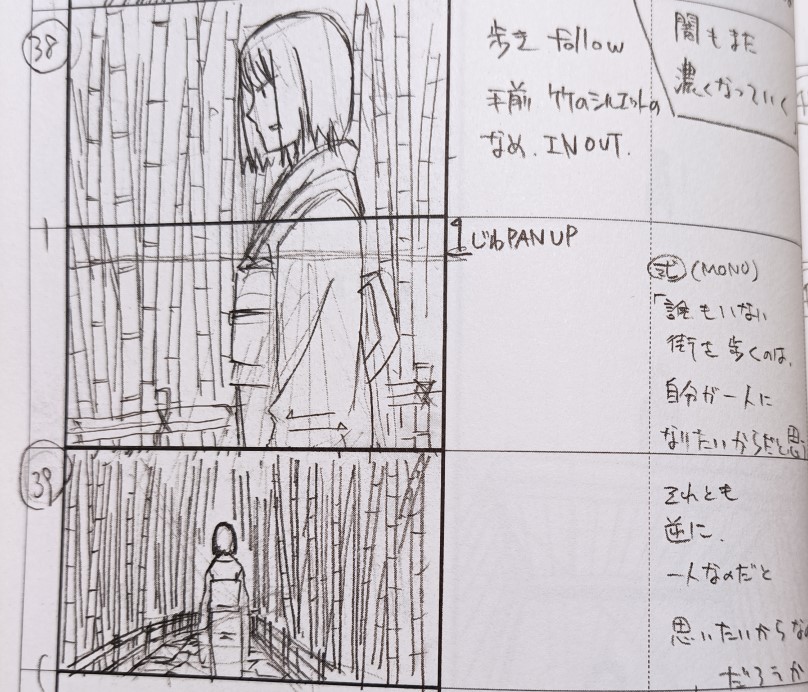 38
歩き follow
手前 竹のシルエットの
なめ. IN OUT.
闇もまた
濃くなっていく
じわPAN UP
式 (MONO)
「誰もいない
街を歩くのは、
自分が一人に
なりたいからだと思
39
それとも
逆に、
一人なのだと
思いたいからな
だろうか